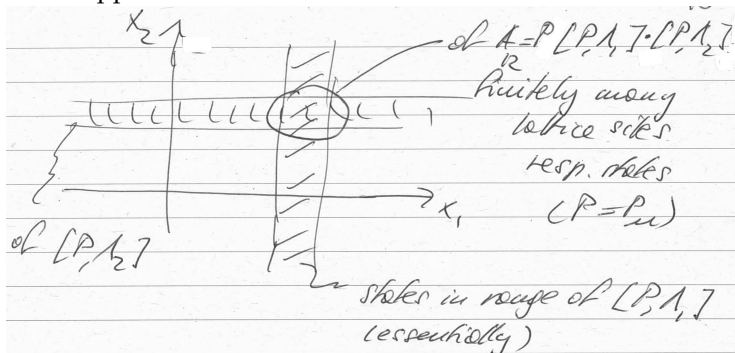 x₂
of A₁₂ = P [P, Λ₁] · [P, Λ₂]
finitely many
lattice sites
resp. states
(P = P_μ)
x₁
of [P, Λ₂]
states in range of [P, Λ₁]
(essentially)